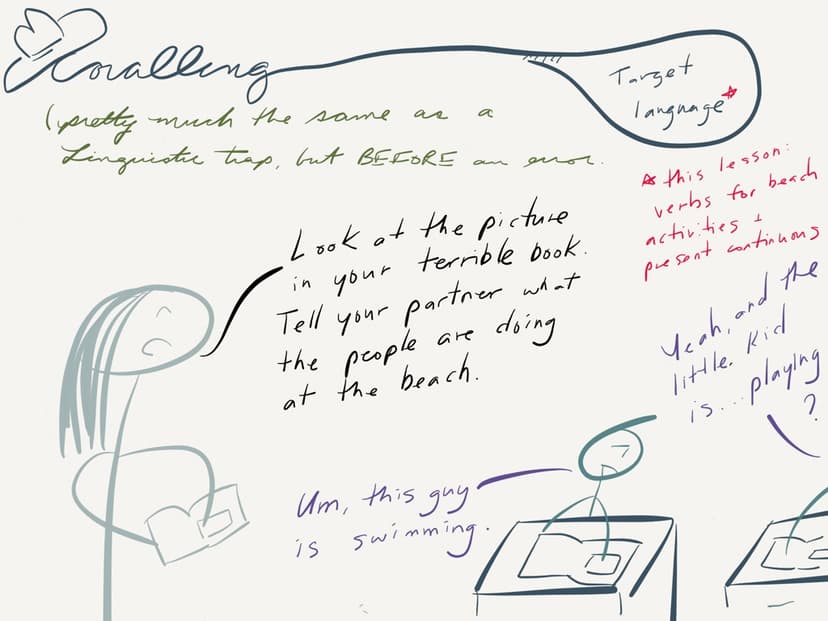 Coralling
Target
language*
(pretty much the same as a
Linguistic trap, but BEFORE an error.
* this lesson:
verbs for beach
activities +
present continuous
Look at the picture
in your terrible book.
Tell your partner what
the people are doing
at the beach.
Um, this guy
is swimming.
Yeah, and the
little kid
is... playing
?